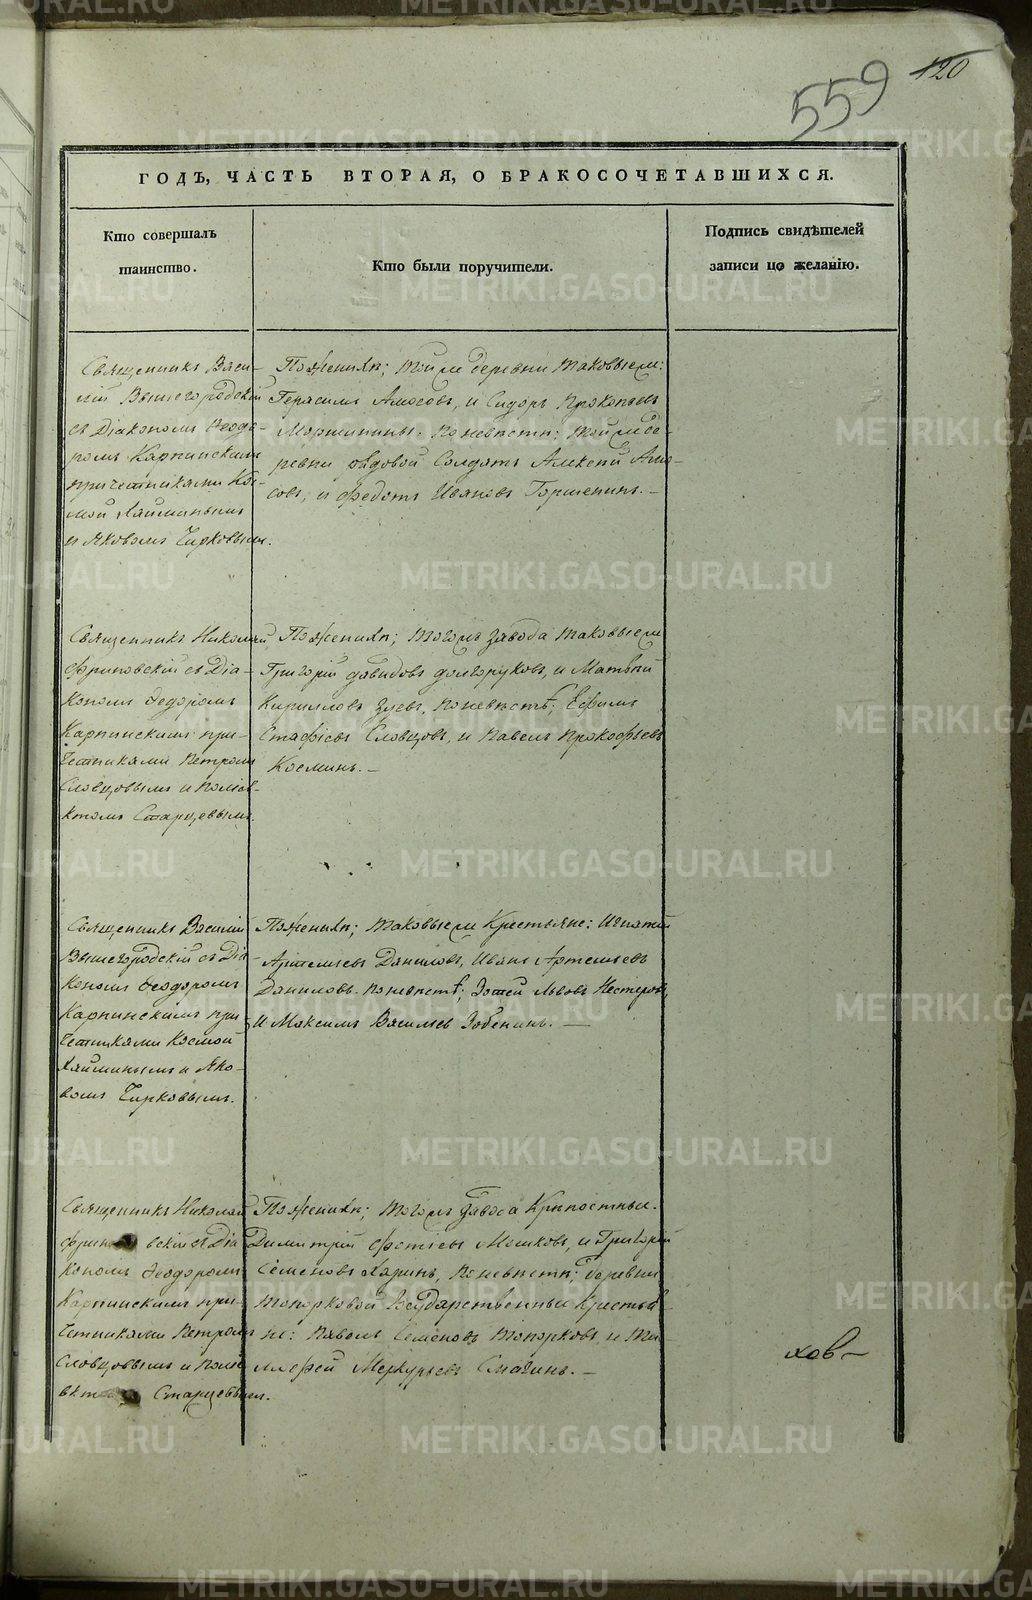 559 120
ГОДЪ, ЧАСТЬ ВТОРАЯ, О БРАКОСОЧЕТАВШИХСЯ.
Кто совершалъ
таинство.
Кто были поручители.
Подпись свидѣтелей
записи по желанію.
Священникъ Васи-
лій Вышегородскій
съ Діакономъ Ѳеодо-
ромъ Карпинскимъ
причетниками Кос-
мой Хайминымъ
и Яковомъ Чирковымъ.
По женихѣ; той же деревни таковые же:
Герасимъ Амосовъ, и Сидоръ Прокопьевъ
По невѣстѣ: той же де-
ревни рядовой Солдатъ Алексѣй Амо-
совъ, и Федотъ Ивановъ Горшенинъ. –
Священникъ Николай
съ Діа-
кономъ Ѳеодоромъ
Карпинскимъ при-
четниками Петромъ
Словцовымъ и Поліев-
ктомъ Старцевымъ.
По женихѣ; того же завода таковые же
Григорій Давидовъ Долгоруковъ, и Матвѣй
Кирилловъ Зуевъ, По невѣстѣ; Ефимъ
Словцовъ, и Павелъ Прокофьевъ
Косминъ. –
Священникъ Василій
Вышегородскій съ Діа-
кономъ Ѳеодоромъ
Карпинскимъ при-
четниками Космой
Хайминымъ и Яко-
вомъ Чирковымъ.
По женихѣ; таковые же Крестьяне: Игнатій
Артемьевъ Даниловъ, Иванъ Артемьевъ
Даниловъ. По невѣстѣ; Зотей Львовъ Нестеровъ,
И Максимъ Васильевъ Зобнинъ. –
Священникъ Николай
съ Діа-
кономъ Ѳеодоромъ
Карпинскимъ при-
четниками Петромъ
Словцовымъ и Поліе-
Старцевымъ.
По женихѣ; того же завода Крѣпостные
Димитрій Фотіевъ Мошковъ, и Григорій
Семеновъ Ларинъ, По невѣстѣ; деревни
Топорковой Государственные Крестья-
не: Павелъ Семеновъ Топорковъ, и Ти-
мофей Меркурьевъ Смагинъ. –
ховъ –
METRIKI.GASO-URAL.RU